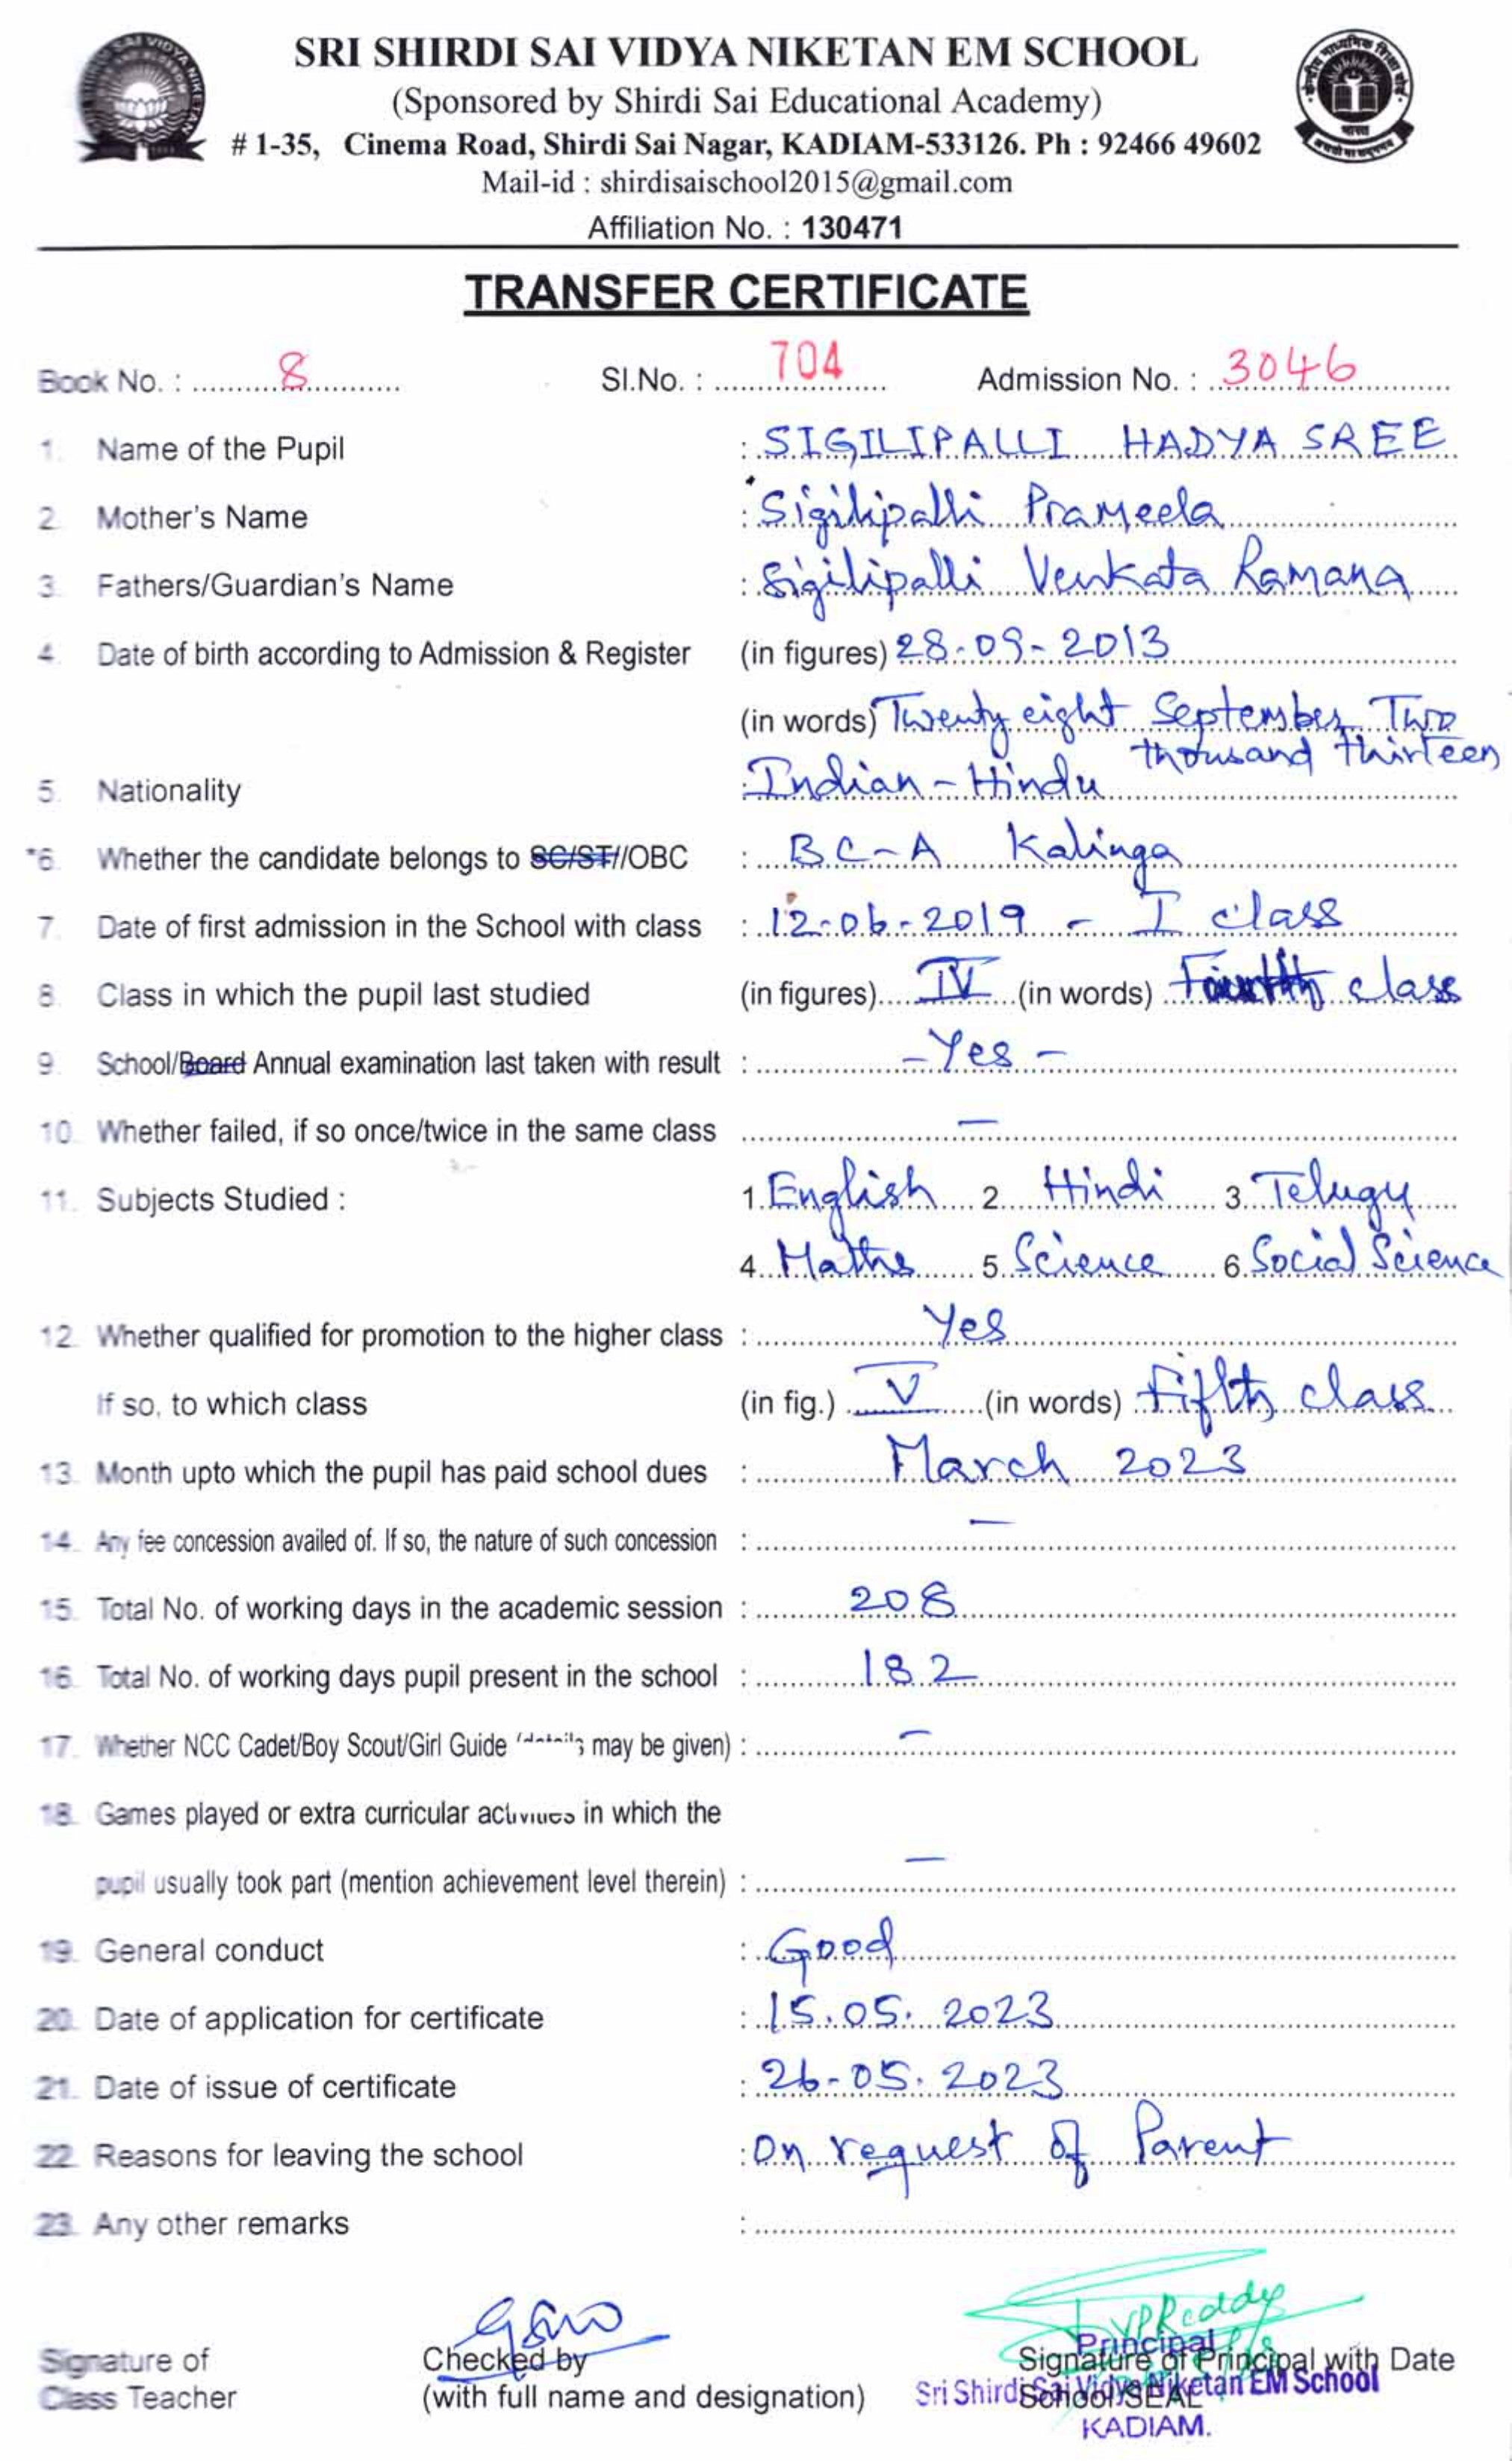 SRI SHIRDI SAI VIDYA NIKETAN EM SCHOOL
(Sponsored by Shirdi Sai Educational Academy)
# 1-35, Cinema Road, Shirdi Sai Nagar, KADIAM-533126. Ph : 92466 49602
Mail-id : shirdisaischool2015@gmail.com
Affiliation No. : 130471
TRANSFER CERTIFICATE
Book No. : 8 Sl.No. : 704 Admission No. : 3046
1. Name of the Pupil : SIGILIPALLI HADYA SREE
2. Mother's Name : Sigilipalli Prameela
3. Fathers/Guardian's Name : Sigilipalli Venkata Ramana
4. Date of birth according to Admission & Register (in figures) 28-09-2013
(in words) Twenty eight September Two
thousand thirteen
5. Nationality : Indian - Hindu
*6. Whether the candidate belongs to SC/ST//OBC : BC-A Kalinga
7. Date of first admission in the School with class : 12-06-2019 - I class
8. Class in which the pupil last studied (in figures) IV (in words) Fourth class
9. School/Board Annual examination last taken with result : - Yes -
10. Whether failed, if so once/twice in the same class -
11. Subjects Studied : 1. English 2. Hindi 3. Telugu
4. Maths 5. Science 6. Social Science
12. Whether qualified for promotion to the higher class : Yes
If so, to which class (in fig.) V (in words) Fifth class
13. Month upto which the pupil has paid school dues : March 2023
14. Any fee concession availed of. If so, the nature of such concession : -
15. Total No. of working days in the academic session : 208
16. Total No. of working days pupil present in the school : 182
17. Whether NCC Cadet/Boy Scout/Girl Guide (details may be given) : -
18. Games played or extra curricular activities in which the
pupil usually took part (mention achievement level therein) : -
19. General conduct : Good
20. Date of application for certificate : 15.05.2023
21. Date of issue of certificate : 26-05.2023
22. Reasons for leaving the school : On request of Parent
23. Any other remarks :
VPReddy
Principal
Signature of Checked by Signature of Principal with Date
Class Teacher (with full name and designation) School/SEAL
Sri Shirdi Sai Vidya Niketan EM School
KADIAM.